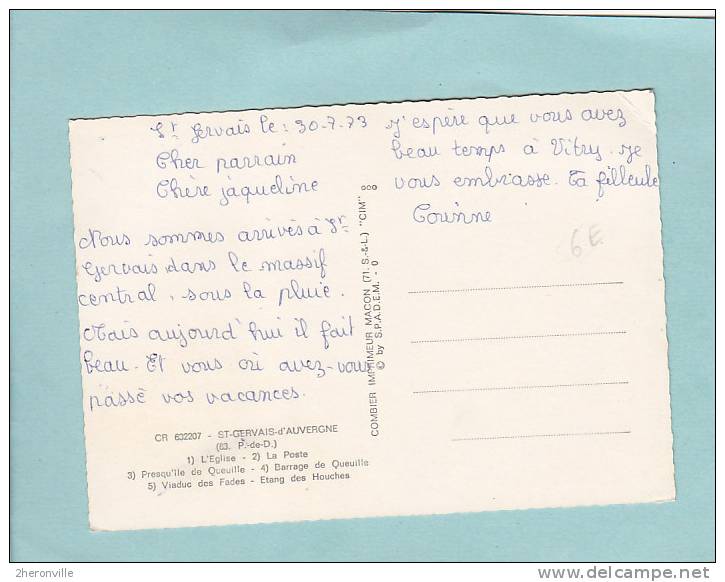 St Gervais le : 30-7-73
Cher parrain
Chère jaqueline
Nous sommes arrivés à St
Gervais dans le massif
central, sous la pluie.
Mais aujourd'hui il fait
beau. Et vous où avez-vous
passé vos vacances.
J'espère que vous avez
beau temps à Vitry. Je
vous embrasse. Ta filleule
Corinne
6E
CR 632207 - ST-GERVAIS-d'AUVERGNE
(63. P.-de-D.)
1) L'Eglise - 2) La Poste
3) Presqu'île de Queuille - 4) Barrage de Queuille
5) Viaduc des Fades - Etang des Houches
COMBIER IMPRIMEUR MACON (71. S.-&-L.) "CIM"
© by S.P.A.D.E.M. - 0
2heronville
DELCAMPE.NET